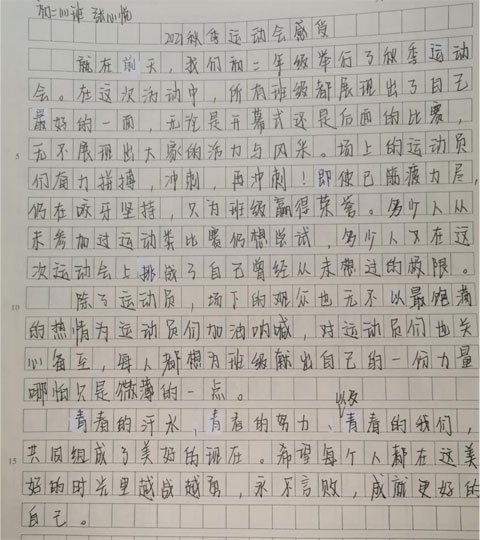 初二(4)班 张心悦
2021秋季运动会感受
就在昨天，我们初二年级举行了秋季运动
会。在这次活动中，所有班级都展现出了自己
最好的一面，无论是开幕式还是后面的比赛，
5 无不展现出大家的活力与风采。场上的运动员
们奋力拼搏，冲刺，再冲刺！即使已筋疲力尽，
仍在咬牙坚持，只为班级赢得荣誉。多少人从
未参加过运动类比赛仍想尝试，多少人又在这
次运动会上挑战了自己曾经从未想过的极限。
10 除了运动员，场下的观众也无不以最饱满
的热情为运动员们加油呐喊，对运动员们也关
心备至，每人都想为班级献出自己的一份力量
哪怕只是微薄的一点。
青春的汗水，青春的努力、以及青春的我们，
15 共同组成了美好的现在。希望每个人都在这美
好的时光里越战越勇，永不言败，成就更好的
自己。